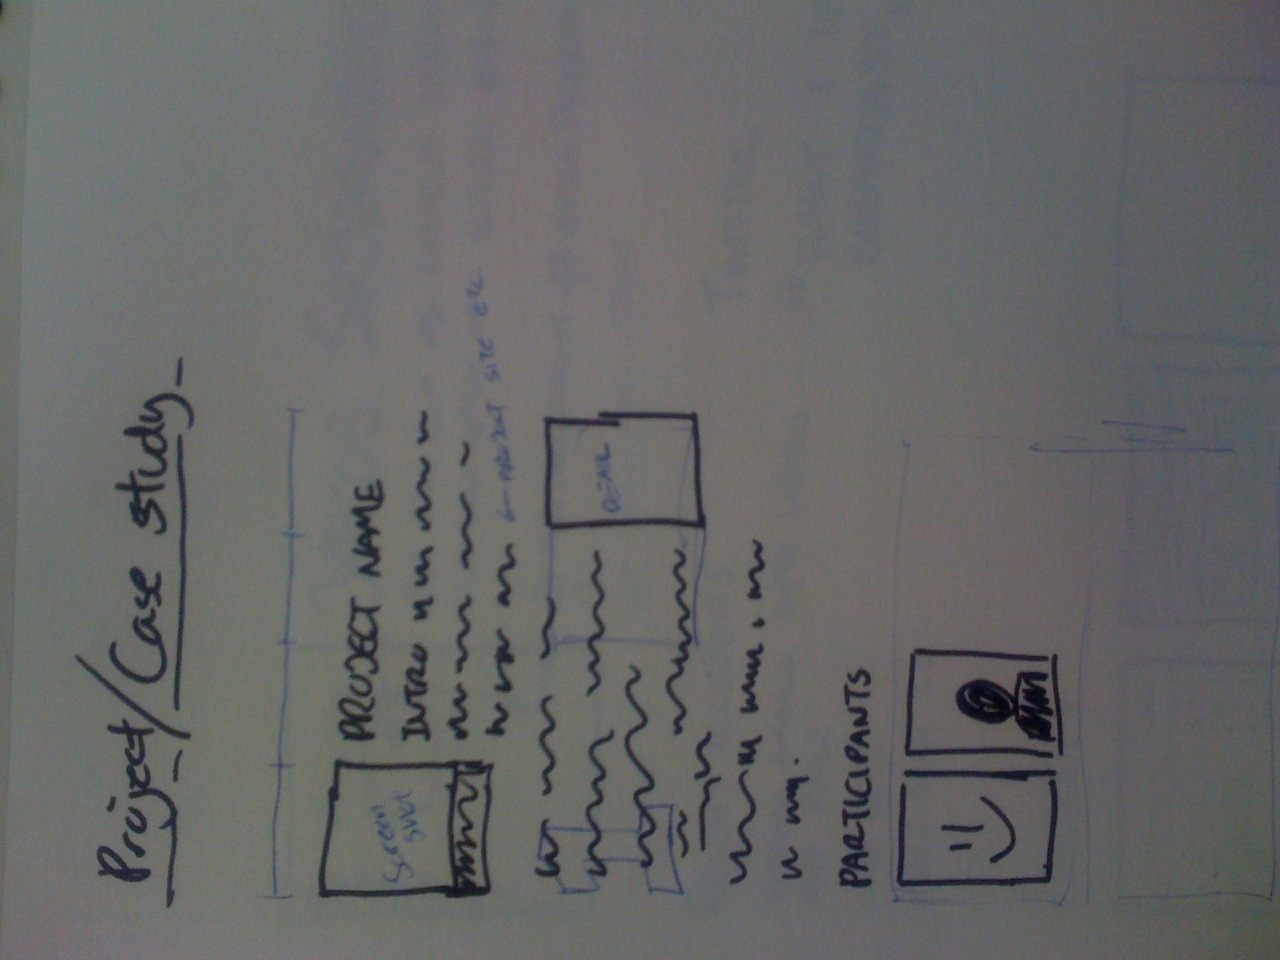 Project/Case study
Screen
shot
PROJECT NAME
INTRO
← PROJECT SITE ETC.
DETAIL
PARTICIPANTS